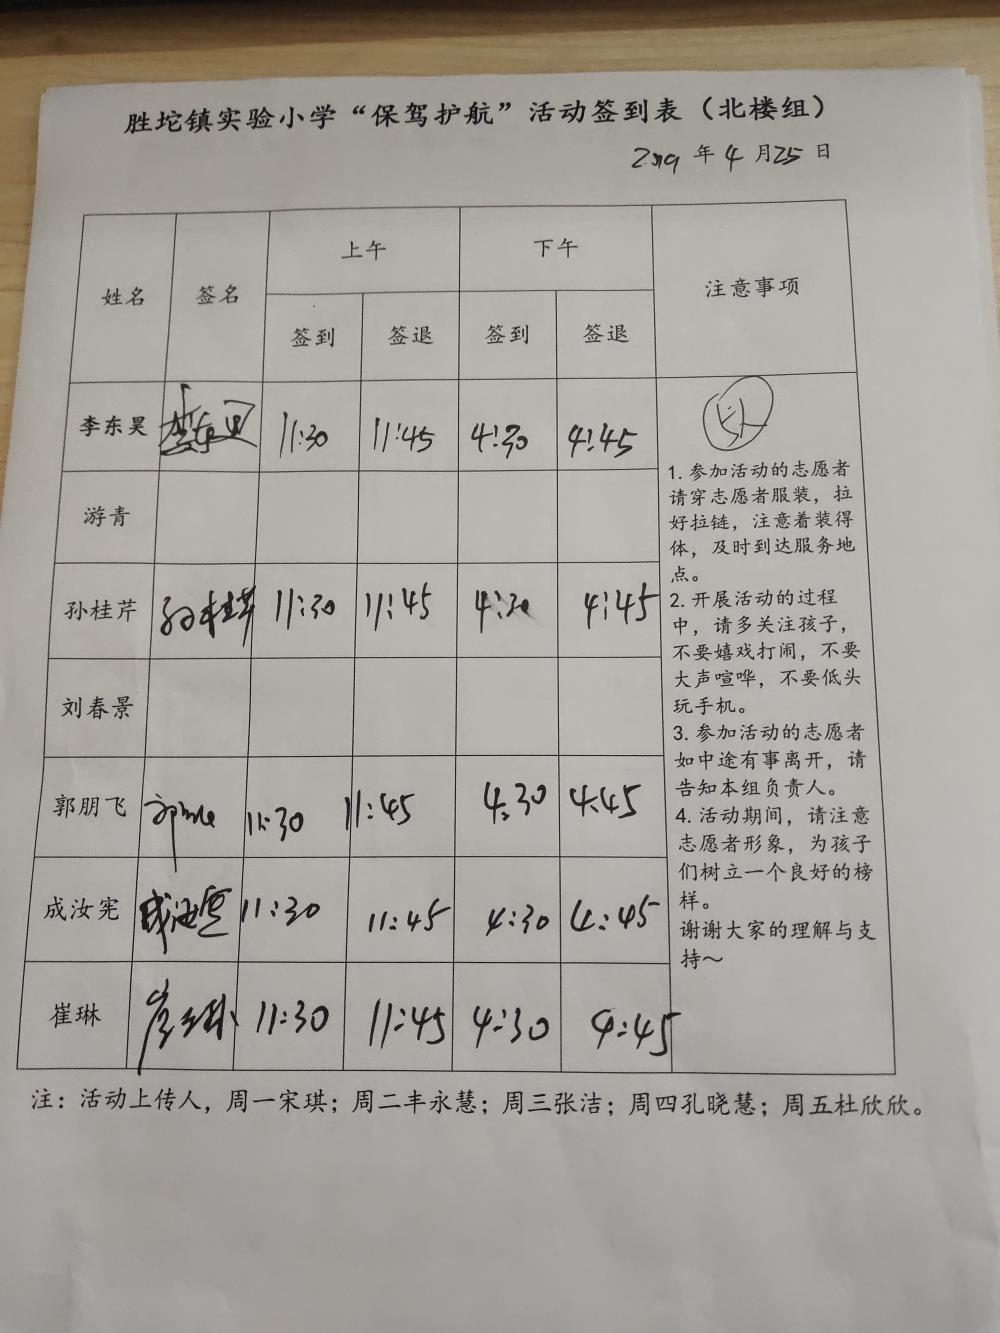 胜坨镇实验小学“保驾护航”活动签到表（北楼组）
2019 年 4 月 25 日
姓名 签名 上午 下午 注意事项
签到 签退 签到 签退
李东昊 李东昊 11:30 11:45 4:30 4:45
游青
孙桂芹 孙桂芹 11:30 11:45 4:30 4:45
刘春景
郭朋飞 11:30 11:45 4:30 4:45
成汝宪 成汝宪 11:30 11:45 4:30 4:45
崔琳 崔琳 11:30 11:45 4:30 4:45
1. 参加活动的志愿者
请穿志愿者服装，拉
好拉链，注意着装得
体，及时到达服务地
点。
2. 开展活动的过程
中，请多关注孩子，
不要嬉戏打闹，不要
大声喧哗，不要低头
玩手机。
3. 参加活动的志愿者
如中途有事离开，请
告知本组负责人。
4. 活动期间，请注意
志愿者形象，为孩子
们树立一个良好的榜
样。
谢谢大家的理解与支
持～
注：活动上传人，周一宋琪；周二丰永慧；周三张洁；周四孔晓慧；周五杜欣欣。